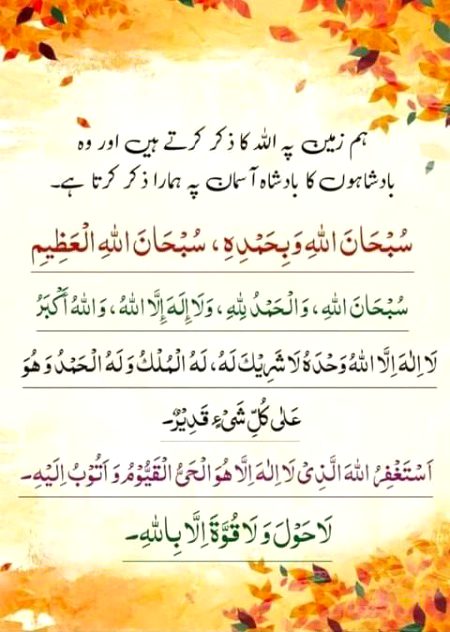 ہم زمین پہ اللہ کا ذکر کرتے ہیں اور وہ
بادشاہوں کا بادشاہ آسمان پہ ہمارا ذکر کرتا ہے۔
سُبْحَانَ اللهِ وَبِحَمْدِهِ ، سُبْحَانَ اللهِ الْعَظِيْمِ
سُبْحَانَ اللهِ ، وَالْحَمْدُ لِلهِ ، وَلَا إِلَهَ إِلَّا اللهُ ، وَاللهُ أَكْبَرُ
لَا اِلٰهَ اِلَّا اللهُ وَحْدَهُ لَا شَرِيْكَ لَهُ، لَهُ الْمُلْكُ وَلَهُ الْحَمْدُ وَهُوَ
عَلٰى كُلِّ شَىْءٍ قَدِيْرٌ۔
اَسْتَغْفِرُ اللهَ الَّذِىْ لَا اِلٰهَ اِلَّا هُوَ الْحَىُّ الْقَيُّوْمُ وَ اَتُوْبُ اِلَيْهِ۔
لَا حَوْلَ وَ لَا قُوَّةَ اِلَّا بِاللهِ۔